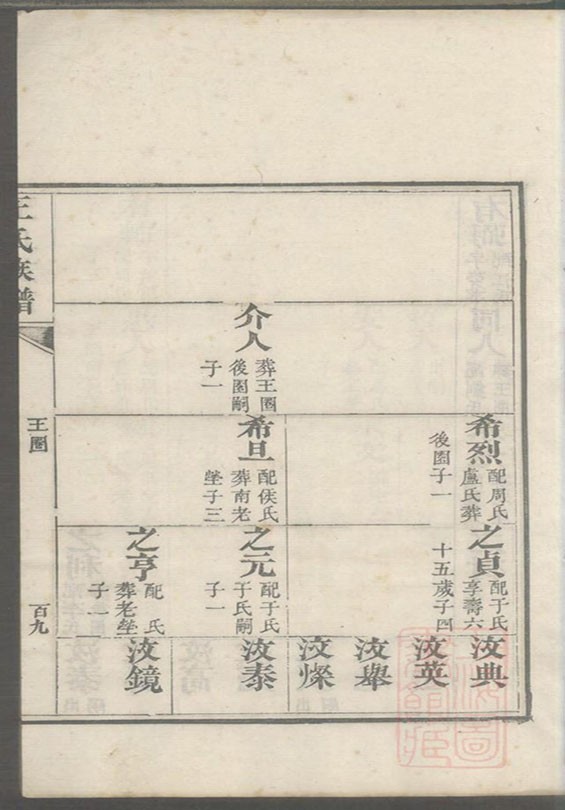 希烈
配周氏
盧氏葬
後圈子一
之貞
配于氏
享壽六
十五歲子四
汝典
汝英
汝舉
汝燦
介人
葬王圈
後圈嗣
子一
希旦
配侯氏
葬南老
塋子三
之元
配于氏
于氏嗣
子一
汝泰
之亨
配 氏
葬老塋
子一
汝鏡
王氏族譜
王圈
百九